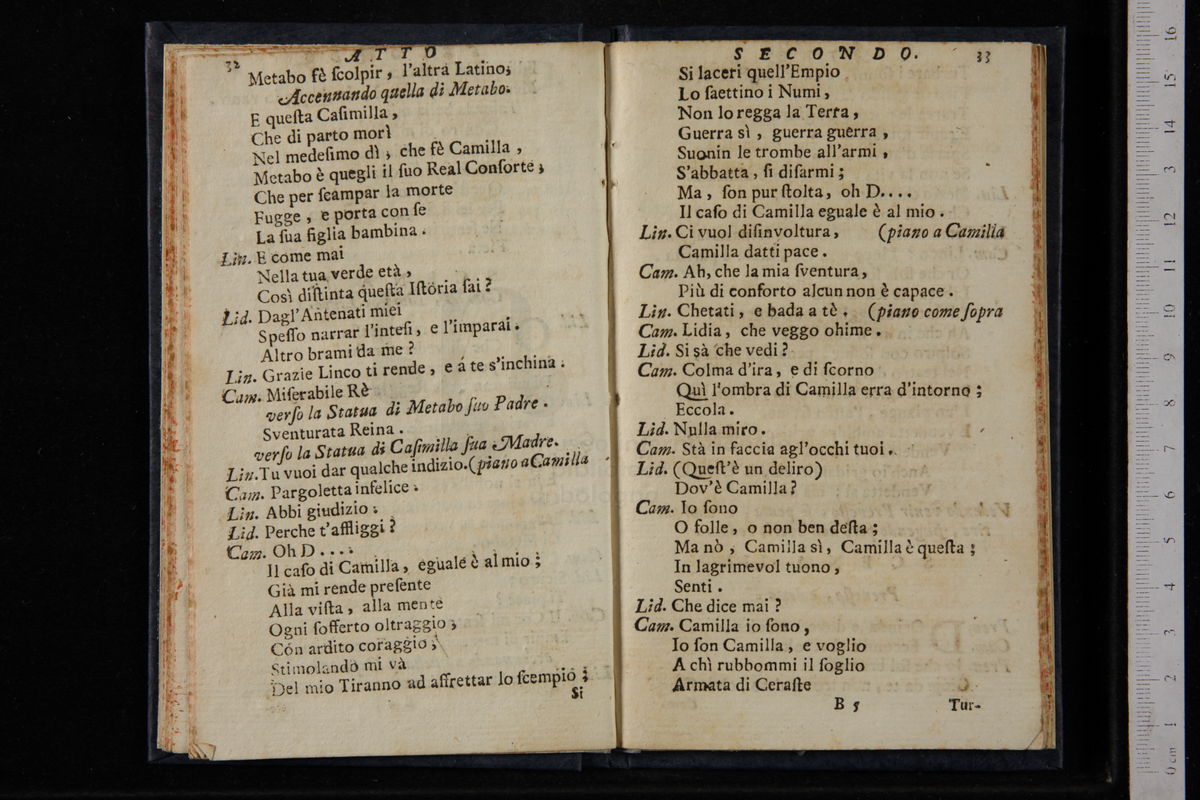 32 ATTO
Metabo fè ſcolpir, l'altra Latino;
Accennando quella di Metabo.
E queſta Caſimilla,
Che di parto morì
Nel medeſimo dì, che fè Camilla,
Metabo è quegli il ſuo Real Conſorte;
Che per ſcampar la morte
Fugge, e porta con ſe
La ſua figlia bambina.
Lin. E come mai
Nella tua verde età,
Così diſtinta queſta Iſtoria ſai?
Lid. Dagl'Antenati miei
Speſſo narrar l'inteſi, e l'imparai.
Altro brami da me?
Lin. Grazie Linco ti rende, e á te s'inchina.
Cam. Miſerabile Rè
verſo la Statua di Metabo ſuo Padre.
Sventurata Reina.
verſo la Statua di Caſimilla ſua Madre.
Lin. Tu vuoi dar qualche indizio. (piano a Camilla
Cam. Pargoletta infelice.
Lin. Abbi giudizio.
Lid. Perche t'affliggi?
Cam. Oh D....
Il caſo di Camilla, eguale è al mio;
Già mi rende preſente
Alla viſta, alla mente
Ogni ſofferto oltraggio;
Cón ardito coraggio;
Stimolando mi và
Del mio Tiranno ad affrettar lo ſcempio;
Si
SECONDO. 33
Si laceri quell'Empio
Lo ſaettino i Numi,
Non lo regga la Terra,
Guerra sì, guerra guerra,
Suonin le trombe all'armi,
S'abbatta, ſi diſarmi;
Ma, ſon pur ſtolta, oh D....
Il caſo di Camilla eguale è al mio.
Lin. Ci vuol diſinvoltura, (piano a Camilla
Camilla datti pace.
Cam. Ah, che la mia ſventura,
Più di conforto alcun non è capace.
Lin. Chetati, e bada a tè. (piano come ſopra
Cam. Lidia, che veggo ohime.
Lid. Si sà che vedi?
Cam. Colma d'ira, e di ſcorno
Quì l'ombra di Camilla erra d'intorno;
Eccola.
Lid. Nulla miro.
Cam. Stà in faccia agl'occhi tuoi.
Lid. (Queſt'è un deliro)
Dov'è Camilla?
Cam. Io ſono
O folle, o non ben deſta;
Ma nò, Camilla sì, Camilla è queſta;
In lagrimevol tuono,
Senti.
Lid. Che dice mai?
Cam. Camilla io ſono,
Io ſon Camilla, e voglio
A chì rubbommi il ſoglio
Armata di Ceraſte
B 5 Tur-